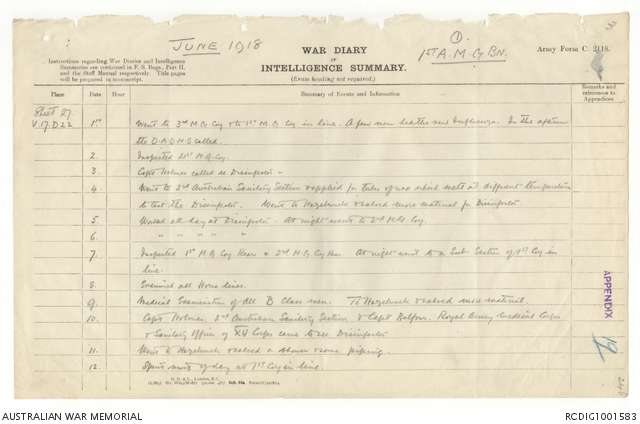 JUNE 1918
WAR DIARY
or
INTELLIGENCE SUMMARY.
(Erase heading not required.)
①
1st A.M.G BN.
Army Form C. 2118.
Instructions regarding War Diaries and Intelligence
Summaries are contained in F. S. Regs., Part II,
and the Staff Manual respectively. Title pages
will be prepared in manuscript.
Place Date Hour Summary of Events and Information Remarks and references to Appendices
Sheet 27.
V.17.D.2.2 1st Went to 3rd M.G. Coy & to 1st M.G. Coy in line. A few men Influenza. In the
the D.A.D.M.S called.
2. Inspected 21st M.G. Coy.
3. Capt Holmes called re Disinfector
4. Went to 2nd Australian Sanitary Section & applied for tubes of wax which melt at different temperatures
to test the Disinfector. Went to Hazebrouck & salved more material for Disinfector
5. Worked all day at Disinfector. At night went to 2nd M.G. Coy.
6. " " " " "
7. Inspected 1st M.G. Coy Rear & 2nd M.G. Coy Rear At night went to a Sub Section of 1st Coy in
line.
8. Examined all Horse lines.
9. Medical Examination of all B Class men. To Hazebrouck & salved more material.
10. Capt Holmes, 2nd Australian Sanitary Section & Capt Balfour, Royal Army Medical Corps
& Sanitary Officer of XV Corps came to see Disinfector
11. Went to Hazebrouck & salved piping.
12. Spent most of day at 1st Coy in line.
APPENDIX
AUSTRALIAN WAR MEMORIAL
RCDIG1001583